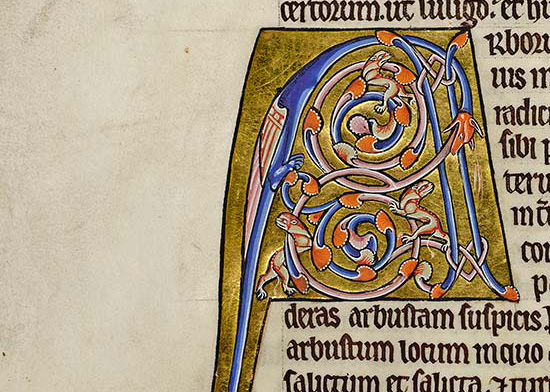 certorum. ut lulligo. et hi
ARboru
ius m
radici
sibi p
teru
con
p
deras arbustam suspicis
arbustum locum inquo
salictum et salicta.